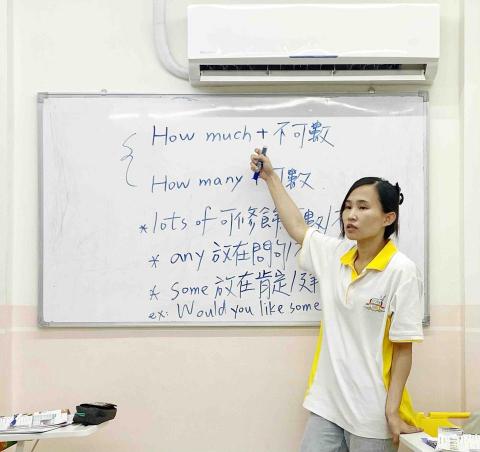 How much + 不可數
How many 可數.
* lots of 可修飾 數/
* any 放在問句/
* some 放在肯定/
ex: Would you like some